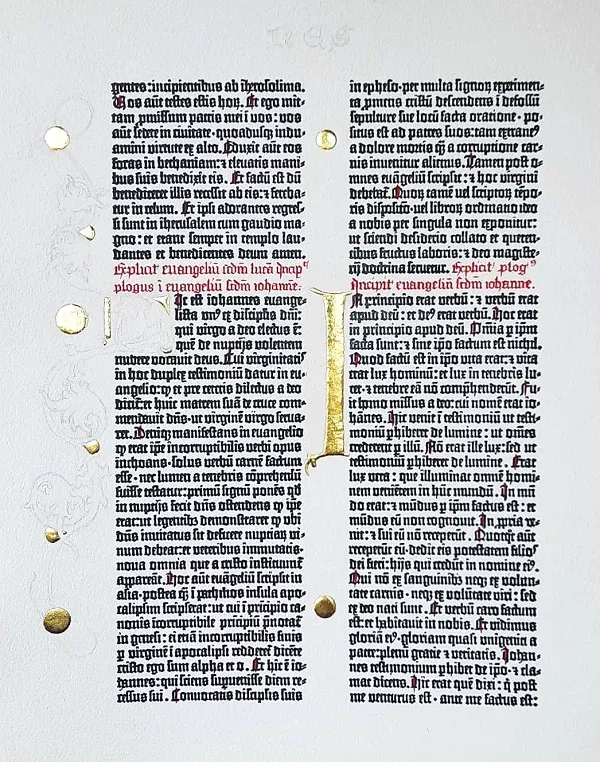 gentes: incipientibus ab iherosolima.
Vos aūt testes estis hoꝝ. Et ego mit-
tam ꝓmissum patris mei ī vos: vos
aūt sedete in civitate · quoadusqꝫ indu-
amini virtute ex alto. Eduxit aūt eos
foras in bethaniam: ⁊ elevatis mani-
bus suis benedixit eis. Et factū est dū
benediceret illis recessit ab eis: ⁊ fereba-
tur in celum. Et ipsi adorantes regres-
si sunt in iherusalem cum gaudio ma-
gno: et erant semper in templo lau-
dantes et benedicentes deum amen.
Explicit euangeliū scdm lucā Incip̄t
ꝓlogus ī euangeliū scdm iohannē.
Hic est iohannes euange-
lista vnꝰ ex discipłis dn̄i:
qui virgo a deo electus ē:
quē de nuptijs volentem
nubere vocauit deus. Cui virginitatꝭ
in hoc duplex testimoniū datur in eu-
angelio: ꝙ et pre ceteris dilectus a deo
dicit̄: et huic matrem suā de cruce com-
mendauit dn̄s · ut virginē virgo serua-
ret. Deniqꝫ manifestans in euangelio
ꝙ erat ip̄e incorruptibilis verbi opus
inchoans · solus verbū carnē factum
esse · nec lumen a tenebris cōprehensū
fuisse testatur: primū signū ponēs qd̄
in nuptijs fecit dn̄s ostendens ꝙ ip̄e
erat: ut legentibꝫ demonstraret ꝙ vbi
dn̄s inuitatus sit deficere nuptiaꝝ vi-
num debeat: et veteribus immutatis ·
noua omnia que a cristo instituunt̄
appareāt. Hoc aūt euāgeliū scripsit in
asia · postea q̄ȝ ī pathmos insula apo-
calipsim scripserat: ut cui ī pricipio ca-
nonis īcorruptibile prīcipiū p̄notat̄
in genesi: ei etiā incorruptibilis finis
ꝑ virginē ī apocalipsi redderet̄ dicēte
cristo ego sum alpha et o. Et hic ē io-
hannes: qui sciens superuenisse diem re-
cessus sui. Conuocatis discipulis suis
in epheso · per multa signoꝝ experimen-
ta ꝓmens cristū descendens ī defossū
sepulture sue locū facta oratione · po-
situs est ad patres suos: tam extraneꝰ
a dolore mortis q̄ȝ a corruptione car-
nis inuenitur alienus. Tamen post o-
mnes euāgeliū scripsit: ⁊ hoc virgini
debebat̄. Quoꝝ tamē vel scriptoꝝ tēpo-
ris dispositō · vel libroꝝ ordinatio ideo
a nobis per singula non exponitur:
ut sciendi desiderio collato et queren-
tibus fructus laboris: ⁊ deo magiste-
rij doctrina seruetur. Explicit ꝓlogꝰ
Incipit euangeliū scdm iohanne.
In principio erat verbū: ⁊ verbū erat
apud deū: et deꝰ erat verbū. Hoc erat
in principio apud deū. Om̄ia ꝑ ip̄m
facta sunt: ⁊ sine ip̄o factum est nichil.
Quod factū est in ip̄o vita erat: ⁊ vita
erat lux hominū: et lux in tenebris lu-
cet · ⁊ tenebre eā nō comp̄henderūt. Fu-
it homo missus a deo: cui nomē erat io-
hānes. Hic venit ī testimoniū ut testi-
moniū ꝑhiberet de lumine: ut om̄es
crederent ꝑ illū. Nō erat ille lux: sed ut
testimoniū ꝑhiberet de lumine. Erat
lux vera: que illuminat omnē homi-
nem veniētem in hūc mundū. In mū-
do erat: ⁊ mūdus ꝑ ip̄m factus est: et
mūdus eū non cognouit. In ꝓpria ve-
nit: ⁊ sui eū nō receperūt. Quotq̄t aūt
receperūt eū · dedit eis potestatem filios
dei fieri: hijs qui credūt in nomine eiꝰ.
Qui nō ex sanguinibꝫ neqꝫ ex volun-
tate carnis · neqꝫ ex volūtate viri: sed
ex deo nati sunt. Et verbū caro factum
est: et habitauit in nobis. Et vidimus
gloriā eiꝰ · gloriam quasi vnigeniti a
patre: plenū gratie ⁊ veritatis. Iohan-
nes testimonium ꝑhibet de ip̄o · ⁊ cla-
mat dicens. Hic erat quē dixi: q̄ post
me venturus est · ante me factus est: